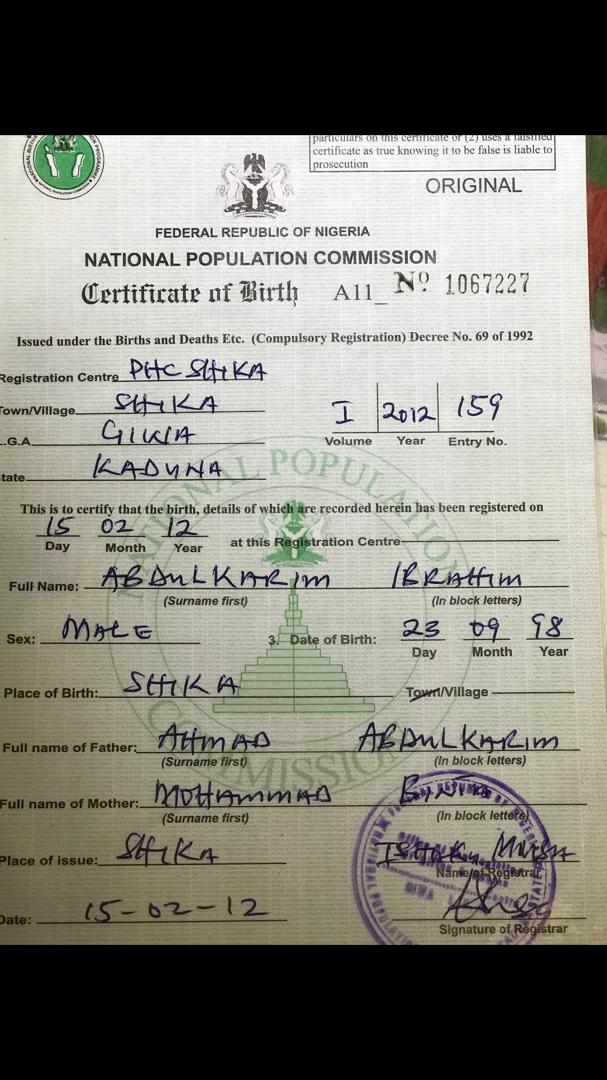 particulars on this certificate or (2) uses a falsified
certificate as true knowing it to be false is liable to
prosecution
ORIGINAL
FEDERAL REPUBLIC OF NIGERIA
NATIONAL POPULATION COMMISSION
Certificate of Birth A11_ No 1067227
Issued under the Births and Deaths Etc. (Compulsory Registration) Decree No. 69 of 1992
Registration Centre PHC SHIKA
Town/Village SHIKA
I 2012 159
Volume Year Entry No.
L.G.A. GIWA
State KADUNA
NATIONAL POPULATION COMMISSION
This is to certify that the birth, details of which are recorded herein has been registered on
15 02 12
Day Month Year at this Registration Centre
Full Name: ABDULKARIM IBRAHIM
(Surname first) (In block letters)
Sex: MALE 3. Date of Birth: 23 09 98
Day Month Year
Place of Birth: SHIKA Town/Village
Full name of Father: AHMAD ABDULKARIM
(Surname first) (In block letters)
Full name of Mother: MOHAMMAD
(Surname first) (In block letters)
Place of issue: SHIKA ISHAKU MUSA
Name of Registrar
Date: 15-02-12
Signature of Registrar